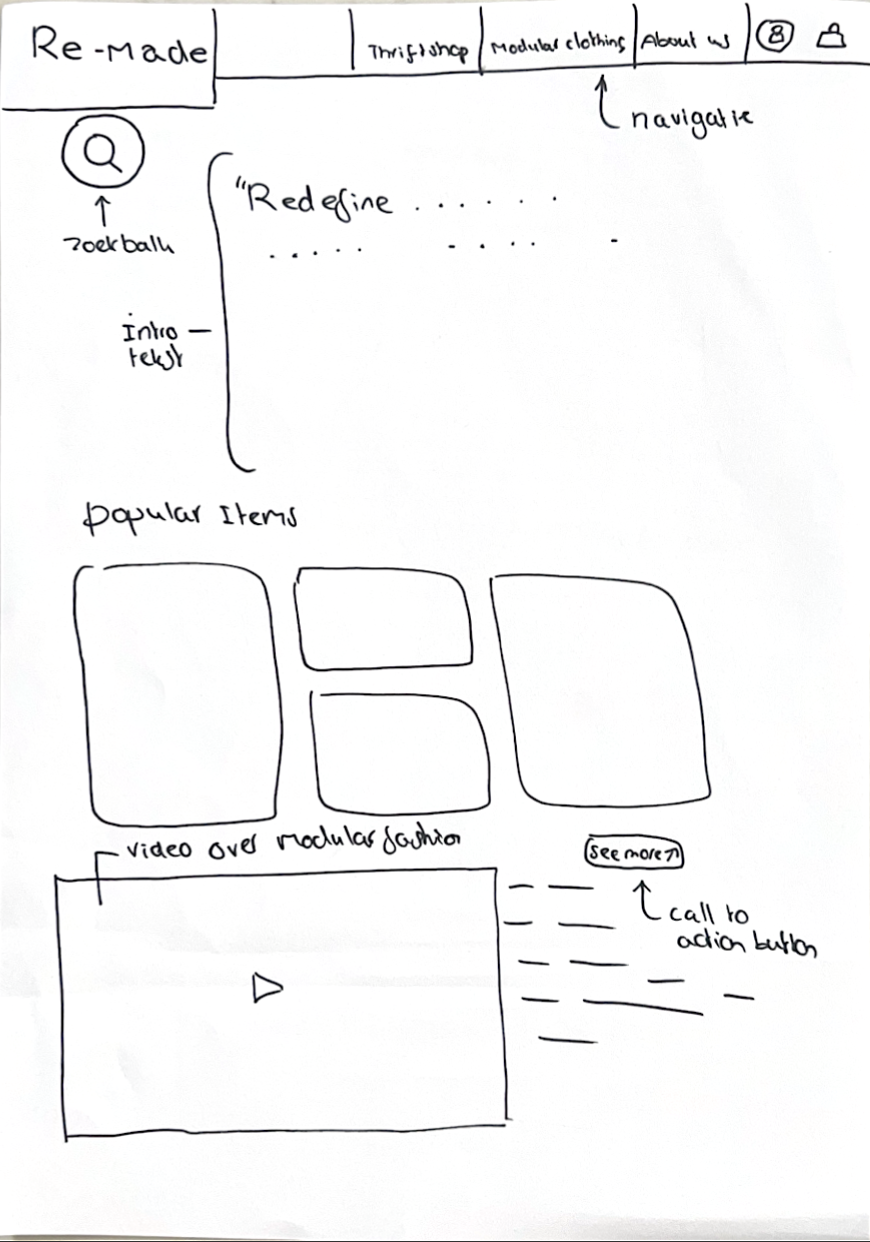 Re-Made
Thriftshop
Modular clothing
About us
navigatie
zoekbalk
"Redefine . . . . . .
Intro
tekst
popular Items
video over modular fashion
see more ↗
call to
action button